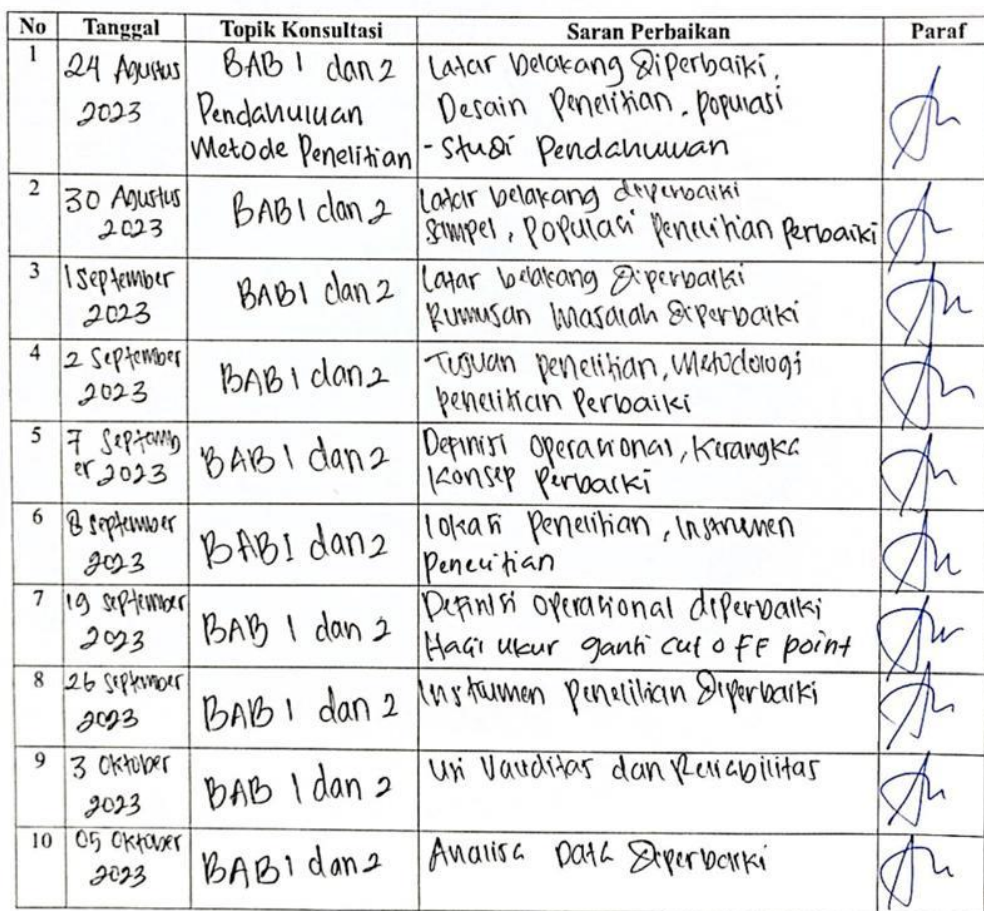 No Tanggal Topik Konsultasi Saran Perbaikan Paraf
1 24 Agustus BAB 1 dan 2 Latar belakang diperbaiki,
2023 Pendahuluan Desain Penelitian, Populasi
Metode Penelitian - Studi Pendahuluan
2 30 Agustus BAB 1 dan 2 Latar belakang diperbaiki
2023 Sampel, Populasi Penelitian Perbaiki
3 1 September BAB 1 dan 2 Latar belakang diperbaiki
2023 Rumusan Masalah diperbaiki
4 2 September BAB 1 dan 2 Tujuan Penelitian, Metodologi
2023 penelitian Perbaiki
5 7 Septemb BAB 1 dan 2 Definisi Operasional, Kerangka
er 2023 Konsep Perbaiki
6 8 September BAB I dan 2 lokasi Penelitian, Instrumen
2023 Penelitian
7 19 September BAB 1 dan 2 Definisi Operasional diperbaiki
2023 Hasil ukur ganti cut oFF point
8 26 September BAB 1 dan 2 Instrumen Penelitian diperbaiki
2023
9 3 Oktober BAB 1 dan 2 Uji Validitas dan Reliabilitas
2023
10 05 Oktober BAB 1 dan 2 Analisa Data diperbaiki
2023